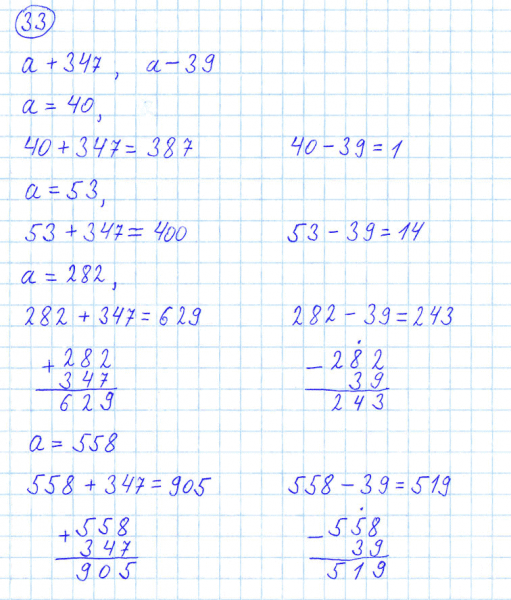 33
a + 347, a - 39
a = 40,
40 + 347 = 387 40 - 39 = 1
a = 53,
53 + 347 = 400 53 - 39 = 14
a = 282,
282 + 347 = 629 282 - 39 = 243
+ 282 - 282
347 39
629 243
a = 558
558 + 347 = 905 558 - 39 = 519
+ 558 - 558
347 39
905 519